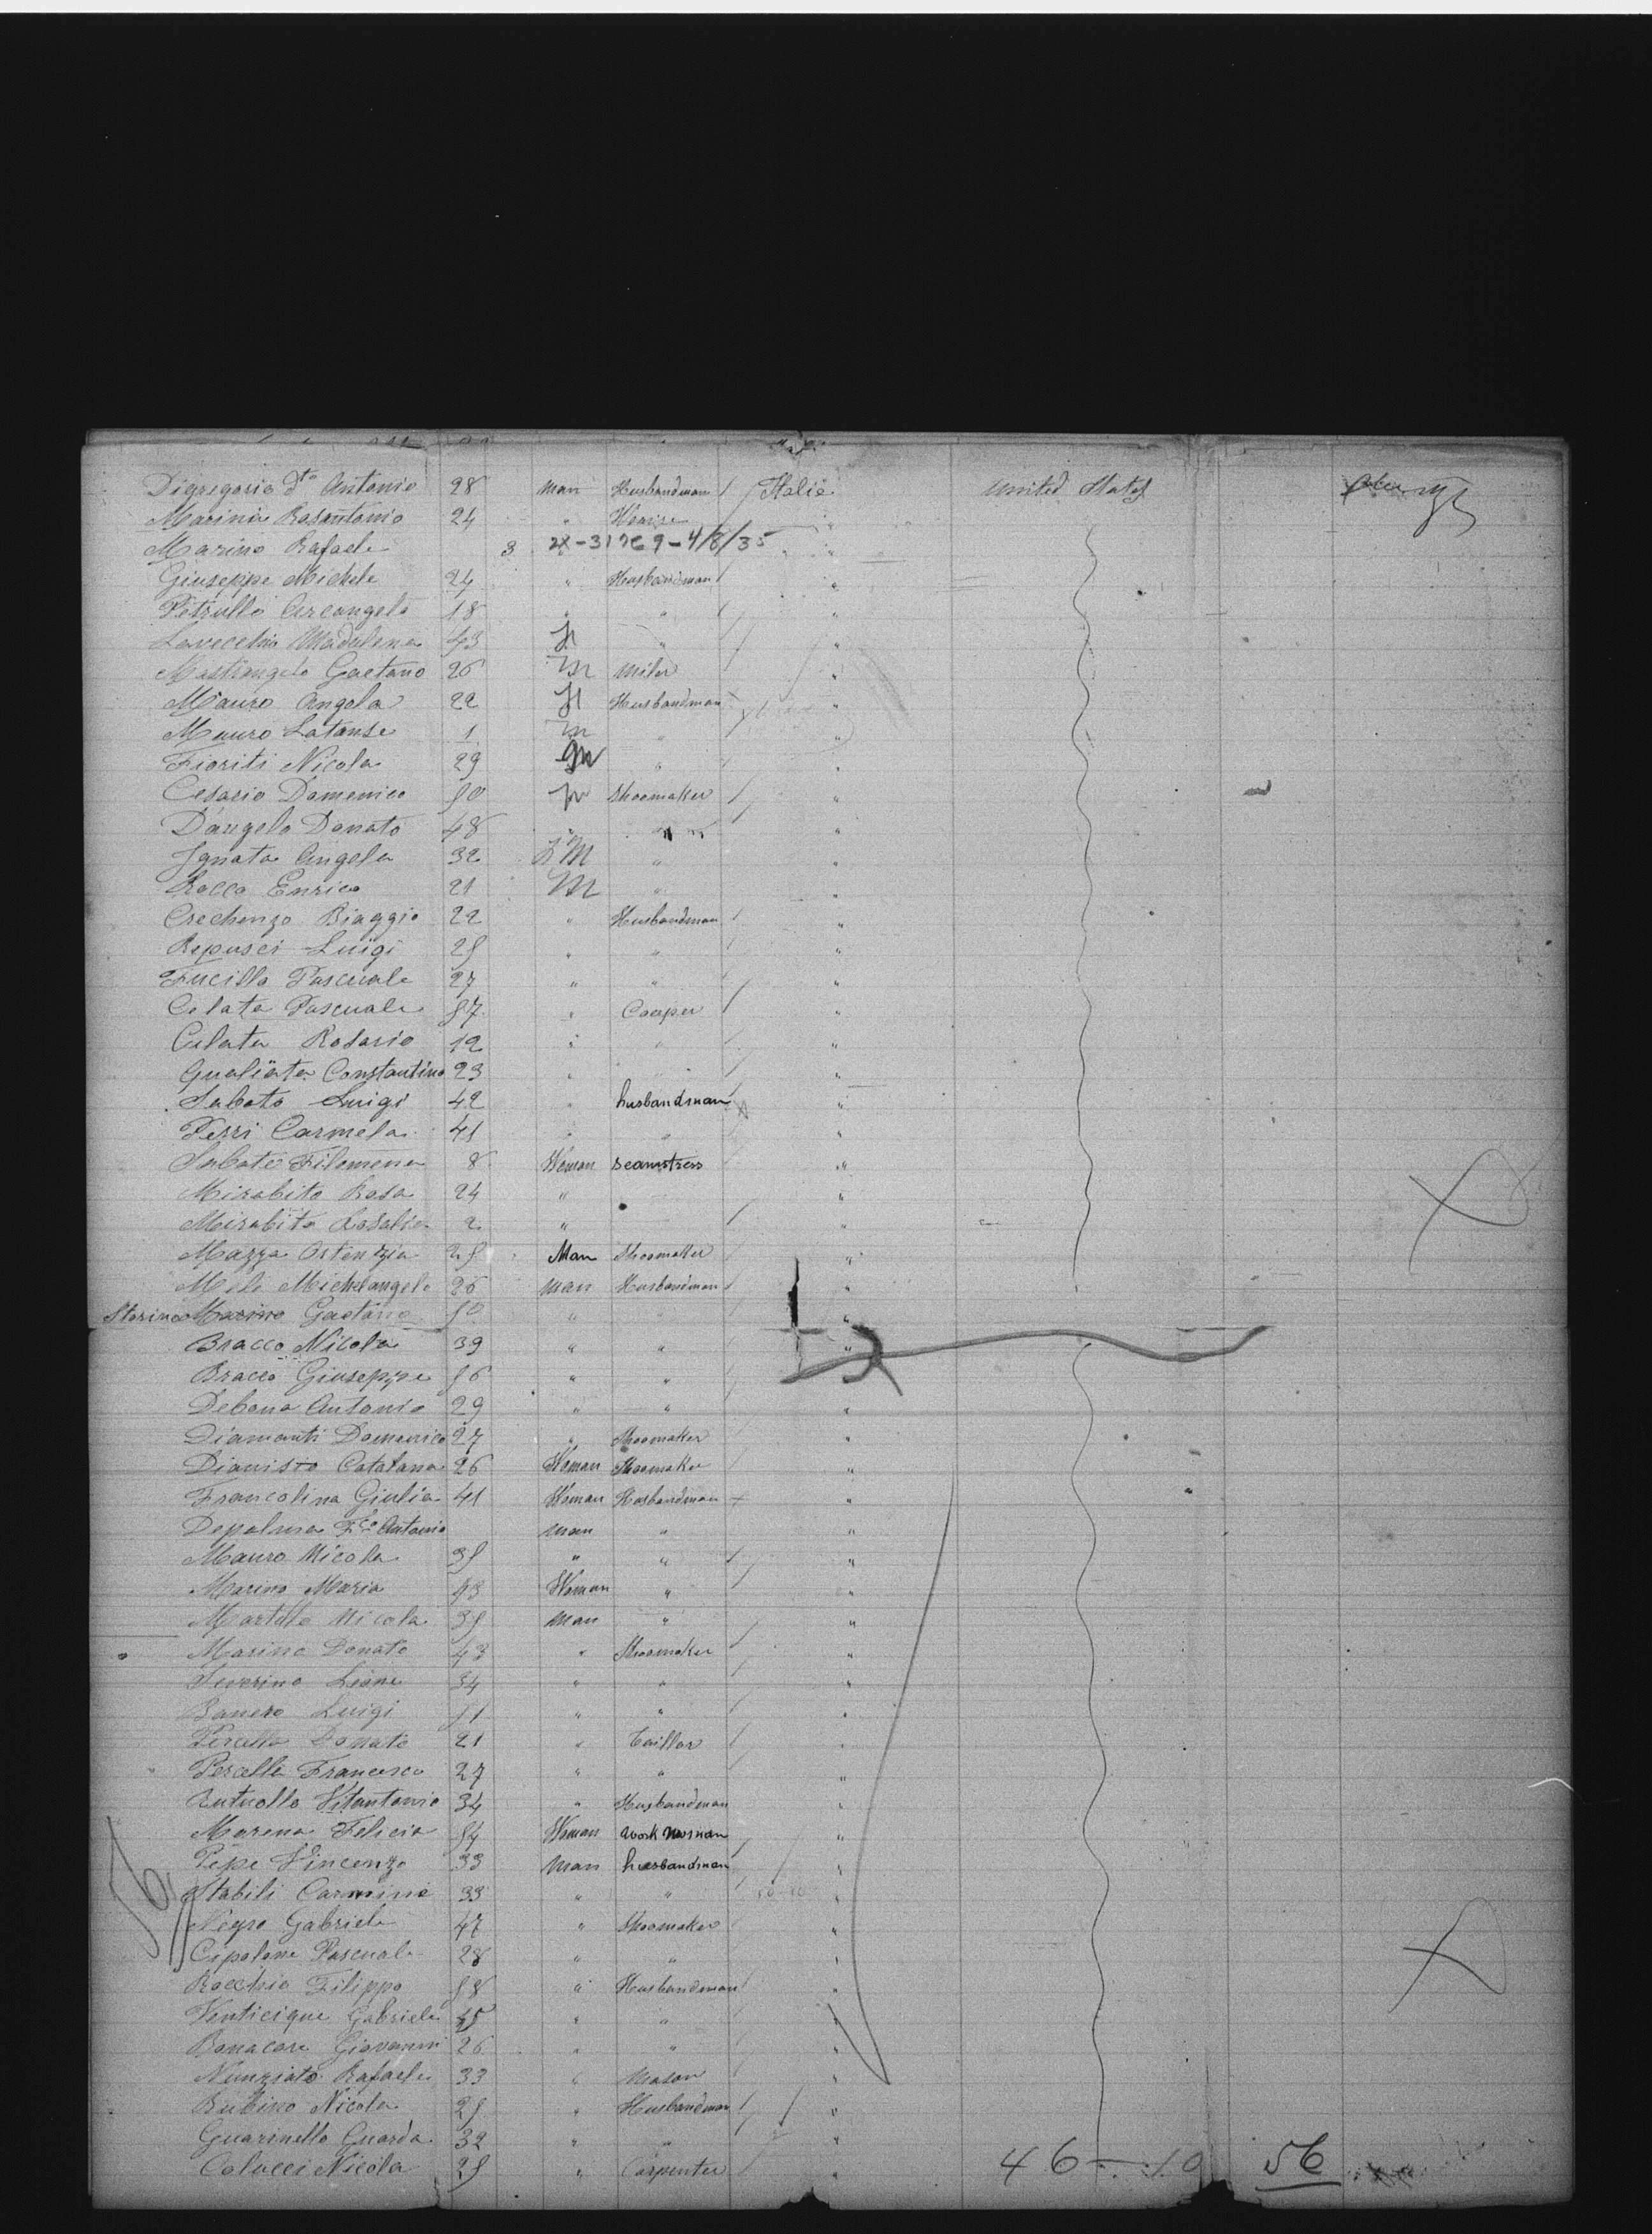 Digregorio Dto Antonio 28 man Husbandman Italie United States
Marinio Rosantonio 24 "
Marino Rafaele 3 2X-31769-4/8/35 "
Giuseppe Michele 24 " Husbandman "
Petrullo Arcangelo 18 " " "
Lavecchia Madalena 43 "
Mastrangelo Gaetano 26 m Miler "
Mauro Angela 22 Husbandman "
Mauro 1 m " "
Fioriti Nicola 29 m " "
Cesario Domenico 50 m Shoomaker "
D'angelo Donato 48 " "
Ignata Angela 32 M " "
Rocco Enrico 21 M " "
Crechenzo Biaggio 22 " Husbandman "
Repusci Luigi 25 " " "
Fucillo Pascuale 27 " " "
Celata Pascuale 57 " Cooper "
Celata Rosario 12 " " "
Gualiata Constantino 23 " " "
Sabato Luigi 42 " husbandman "
Ferri Carmela 41 " " "
Sabato Filomena 8 Woman seamstress "
Mirabito Rosa 24 " "
Mirabito Rosalia 2 " "
Mazza Ortenzia 25 Man Shoomaker "
Mele Michelangelo 26 man Husbandman "
Storino Marino Gaetano 50 " " "
Bracco Nicola 39 " " "
Bracco Giuseppe 56 " " "
Debona Antonio 29 " " "
Diamanti Domenico 27 " Shoomaker "
Dianisto Catalana 26 Woman Shoomaker "
Francolina Giulia 41 Woman Husbandman "
Depalma Fco Antonio man " "
Mauro Nicola 35 " " "
Marino Maria 43 Woman " "
Martello Nicola 35 man " "
Marino Donato 43 " Shoomaker "
Severino Leone 34 " " "
Banero Luigi 51 " " "
Percella Donato 21 " Taillor "
Percella Francesco 27 " " "
Rutuollo Vitantonio 34 " Husbandman "
Morena Felicia 54 Woman work woman "
Pepe Vincenzo 33 man husbandman "
Stabili Carmine 33 " " "
Negro Gabriele 47 " Shoomaker "
Cipolone Pascuale 28 " " "
Rocchio Filippo 58 " Husbandman "
Venticique Gabriele 45 " " "
Bonacore Giovanni 26 " " "
Nunziato Rafaele 33 " Mason "
Rubino Nicola 25 " Husbandman "
Guarinello Guarda 32 " " "
Colucci Nicola 25 " Carpenter " 46 - 10 56